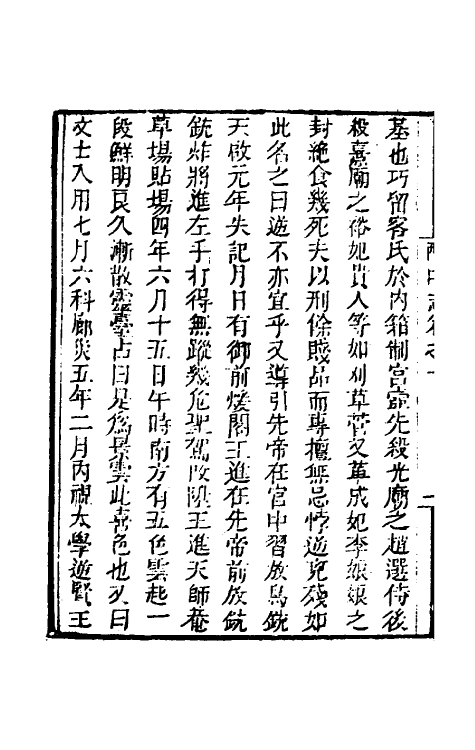 基也巧留客氏於內箝制宮壼先殺光廟之趙選侍後
殺熹廟之裕妃貴人等如刈草菅又革成妃李娘娘之
封絕食幾死夫以刑餘賤品而專擅無忌悖逆兇殘如
此名之曰逆不亦宜乎又導引先帝在宮中習放鳥銃
天啟元年失記月日有御前煖閣王進在先帝前放銃
銃炸將進左手打得無蹤幾危聖駕改陞王進天師菴
草場貼場四年六月十五日午時南方有五色雲起一
段鮮明良久漸散靈臺占曰是為景雲此喜色也又曰
文士入用七月六科廊災五年二月丙視太學逆賢王